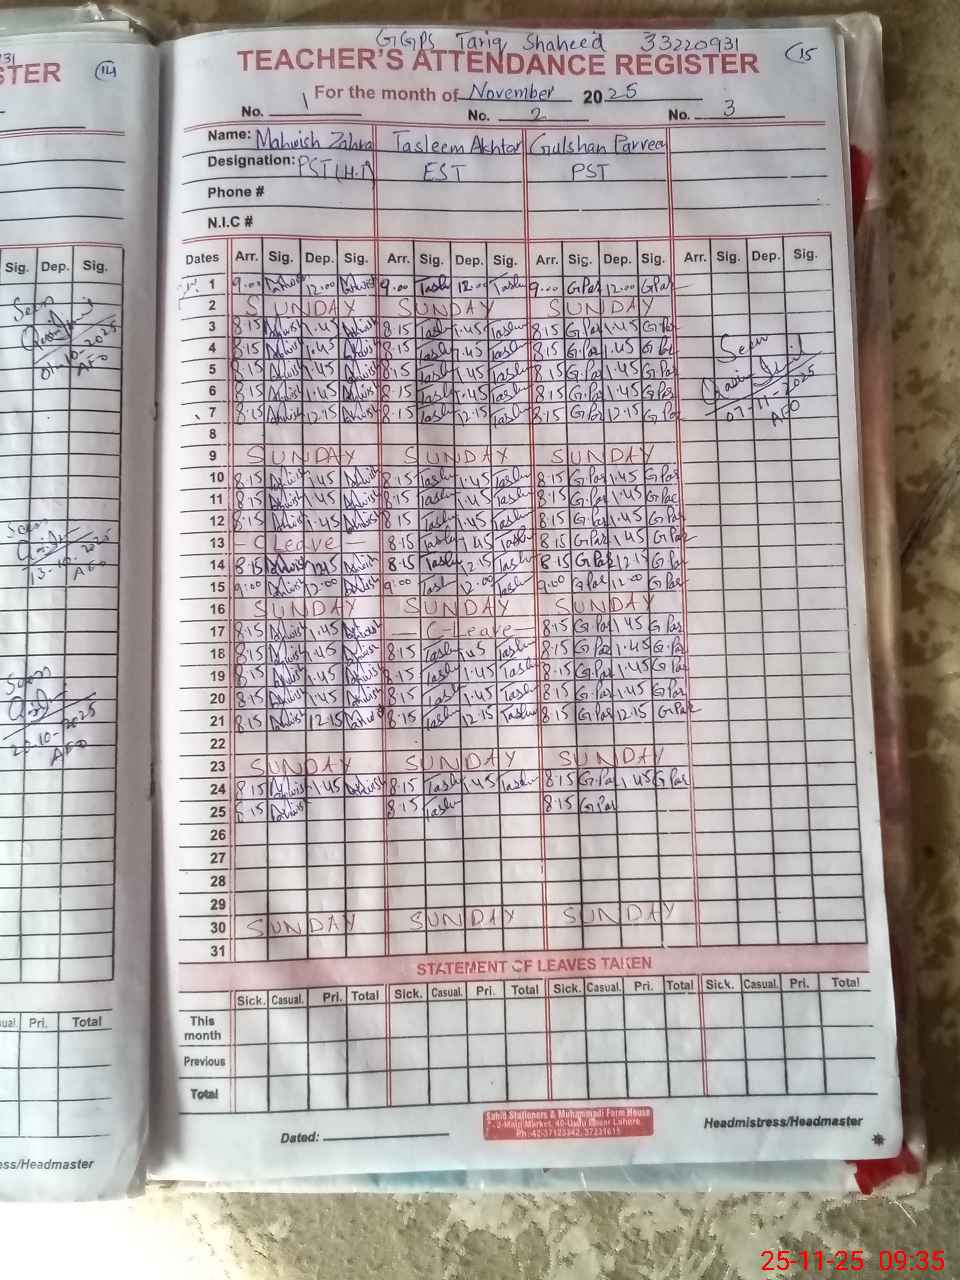 31
STER 14
Sig. Dep. Sig.
Seen
01-10-2025
AEO
Seen
13-10-2025
AEO
Seen
20-10-2025
AEO
ual. Pri. Total
ess/Headmaster
GGPS Tariq Shaheed 33220931
15
TEACHER'S ATTENDANCE REGISTER
For the month of November 2025
No. 1 No. 2 No. 3
Name: Mahwish Zahra Tasleem Akhtar Gulshan Parveen
Designation: PST(H.T) EST PST
Phone #
N.I.C #
Dates Arr. Sig. Dep. Sig. Arr. Sig. Dep. Sig. Arr. Sig. Dep. Sig. Arr. Sig. Dep. Sig.
1 9.00 12.00 9.00 12.00 9.00 G Par 12.00 G Par
2 SUNDAY SUNDAY SUNDAY
3 8.15 1.45 8.15 1.45 8.15 G.Par 1.45 G.Par
4 8.15 1.45 8.15 1.45 8.15 G.Par 1.45 G.Par
5 8.15 1.45 8.15 1.45 8.15 G.Par 1.45 G.Par
6 8.15 1.45 8.15 1.45 8.15 G.Par 1.45 G.Par
7 8.15 12.15 8.15 12.15 8.15 G.Par 12.15 G.Par
Seen
07-11-2025
AEO
8
9 SUNDAY SUNDAY SUNDAY
10 8.15 1.45 8.15 1.45 8.15 G.Par 1.45 G.Par
11 8.15 1.45 8.15 1.45 8.15 G.Par 1.45 G.Par
12 8.15 1.45 8.15 1.45 8.15 G.Par 1.45 G.Par
13 - C Leave - 8.15 1.45 8.15 G.Par 1.45 G.Par
14 8.15 8.15 12.15 8.15 G.Par 12.15 G.Par
15 9.00 12.00 9.00 12.00 9.00 G Par 12.00 G Par
16 SUNDAY SUNDAY SUNDAY
17 8.15 1.45 — C-Leave — 8.15 G.Par 1.45 G.Par
18 8.15 1.45 8.15 1.45 8.15 G.Par 1.45 G.Par
19 8.15 1.45 8.15 1.45 8.15 G.Par 1.45 G.Par
20 8.15 1.45 8.15 1.45 8.15 G.Par 1.45 G.Par
21 8.15 12.15 8.15 12.15 8.15 G.Par 12.15 G.Par
22
23 SUNDAY SUNDAY SUNDAY
24 8.15 1.45 8.15 1.45 8.15 G.Par 1.45 G Par
25 8.15 8.15 8.15 G Par
26
27
28
29
30 SUNDAY SUNDAY SUNDAY
31
STATEMENT OF LEAVES TAKEN
Sick. Casual. Pri. Total Sick. Casual. Pri. Total Sick. Casual. Pri. Total Sick. Casual. Pri. Total
This month
Previous
Total
Dated:
Sahib Stationers & Muhammadi Form House
2-Main Market, 40-Urdu Bazar Lahore.
Ph:42-37123342, 37231615
Headmistress/Headmaster
25-11-25 09:35